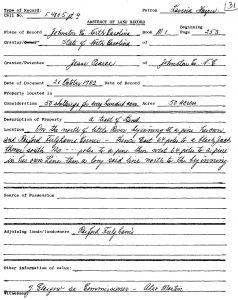 Type of Record: Patron Bernice Hayes 31
Call No. S 4805 pt 9
ABSTRACT OF LAND RECORD
Beginning
Place of Record Johnston Co North Carolina Book M1 Page 253
Grantor/ State of North Carolina
Grantee/Patentee Jesse Pearce of Johnston Co N C
Date of Document 21 October 1782 Date of Record
Property located in
Consideration 50 shillings for every hundred acres Acres 50 acres
Property description a tract of land
Location On the north of little River beginning at a pine his own
and Raiford Fulghams Corner - thence East 64 poles to a black jack
thence south 110 - - - poles to a pine then west 64 poles to a pine
in his own line then a long said line north to the beginning
Source of Possession
Adjoining lands/landowners Raiford Fulghams
Other information of value:
J Glasgow as Commissioner - Alex Martin
Witnesses